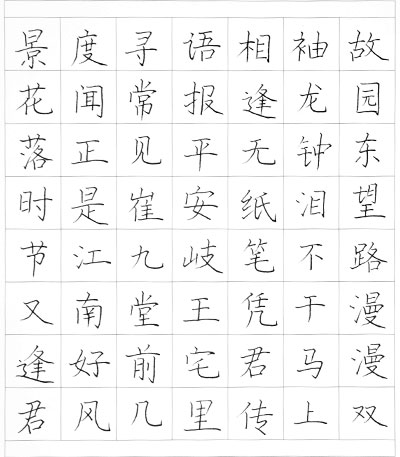 故园东望路漫漫双
袖龙钟泪不干马上
相逢无纸笔凭君传
语报平安岐王宅里
寻常见崔九堂前几
度闻正是江南好风
景花落时节又逢君